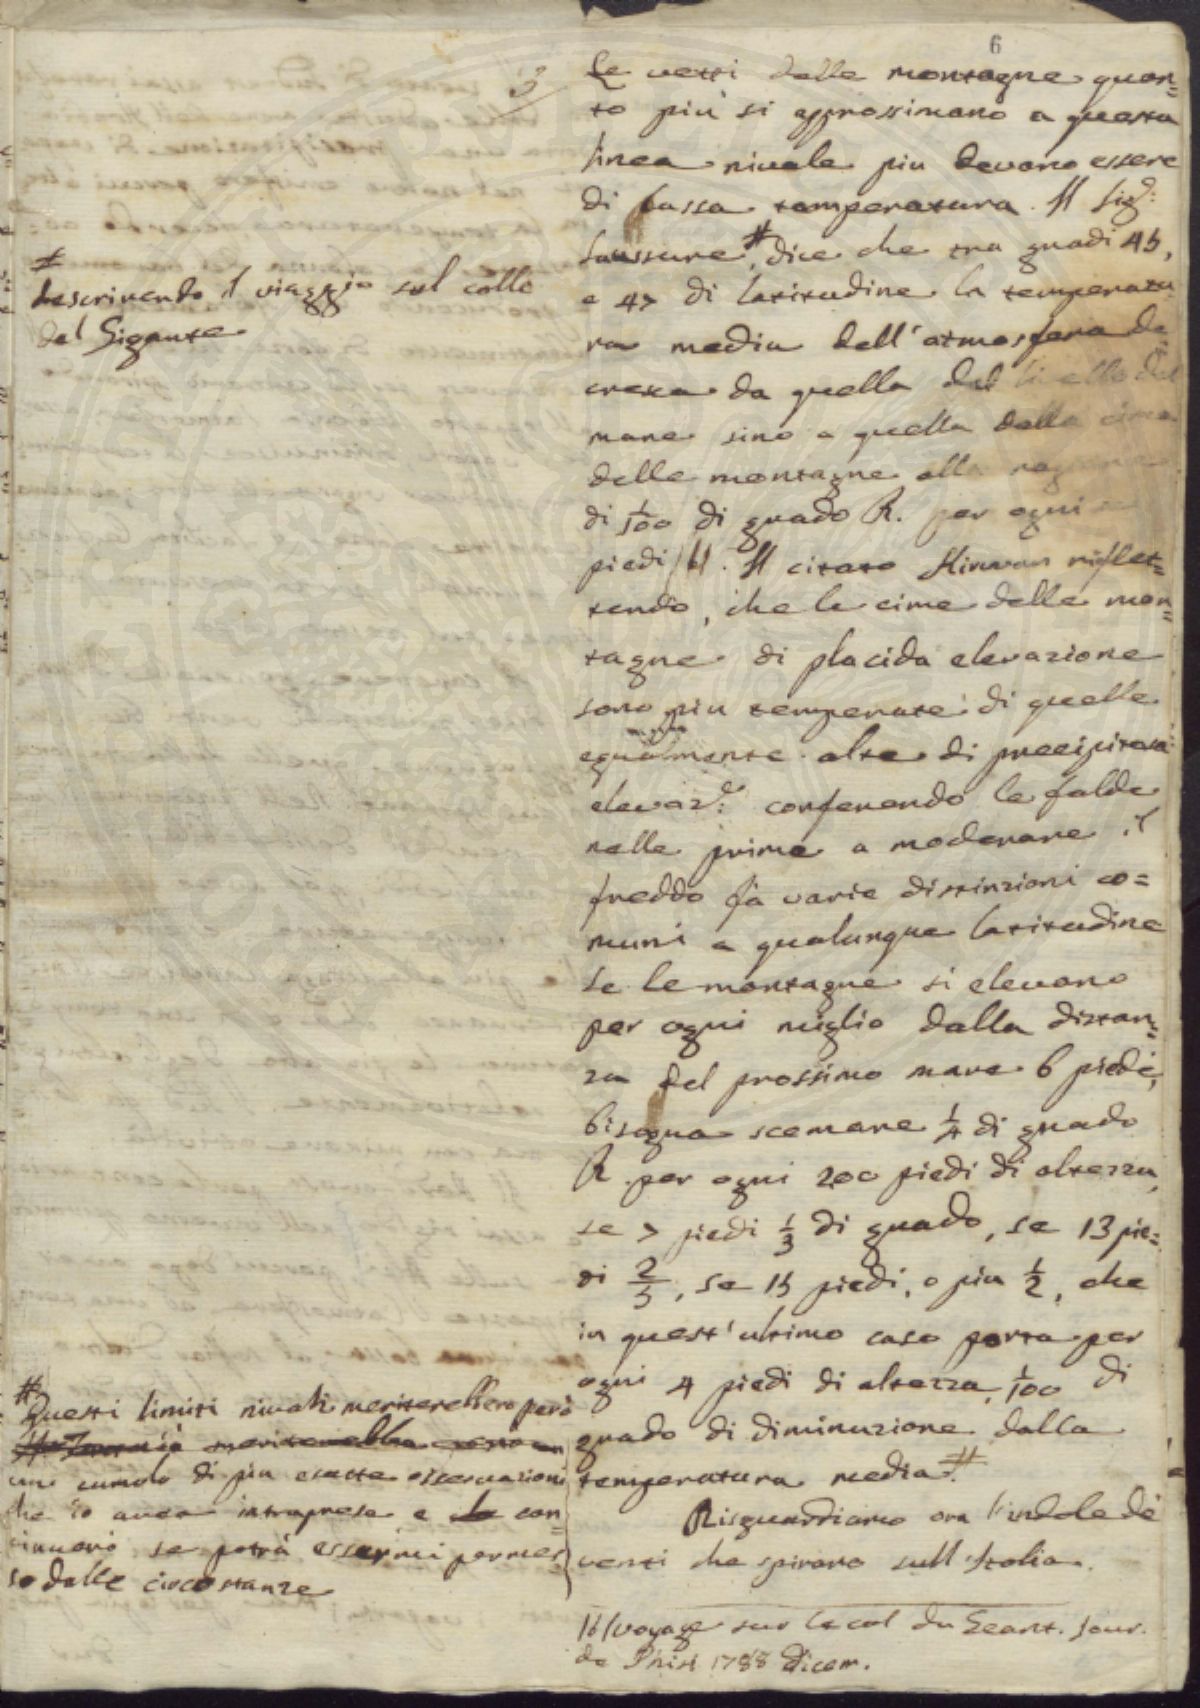 6
3
Le vette delle montagne quan=
to più si approssimano a questa
linea nivale piu devono essere
di bassa temperatura. Il Sig.:
Saussure # dice che tra gradi 45,
e 47 di latitudine la temperatu
ra media dell'atmosfera de
cresca da quella del livello del
mare sino a quella della cima
delle montagne alla ragione
di 1/100 di grado R. per ogni
piedi (b). Il citato Kirwan riflet=
tendo, che le cime delle mon=
tagne di placida elevazione
sono piu temperate di quelle
egualmente alte di precipitosa
elevaz.e: conferendo le falde
nelle prime a moderare il
freddo fà varie distinzioni co=
muni a qualunque latitudine
se le montagne si elevano
per ogni miglio dalla distan=
za del prossimo mare 6 piedi,
bisogna scemare 1/4 di grado
R. per ogni 200 piedi di altezza,
se 7 piedi 1/3 di grado, se 13 pie=
di 2/3, se 15 piedi, o piu 1/2, che
in quest'ultimo caso porta per
ogni 4 piedi di altezza 1/100 di
grado di diminuzione dalla
temperatura media #.
Risguardiamo ora l'indole de'
venti che spirano sull'Italia.
(b) voyage sur le col du Geant. Jour.
de Phisi 1788 dicem.
#
descrivendo il viaggio sul collo
del Gigante
# Questi limiti nivali meriterebbero però
meriterebbe
un cumolo di piu esatte osservazioni
che io avea intraprese e con=
tinuerò se potrà essermi permes
so dalle circostanze